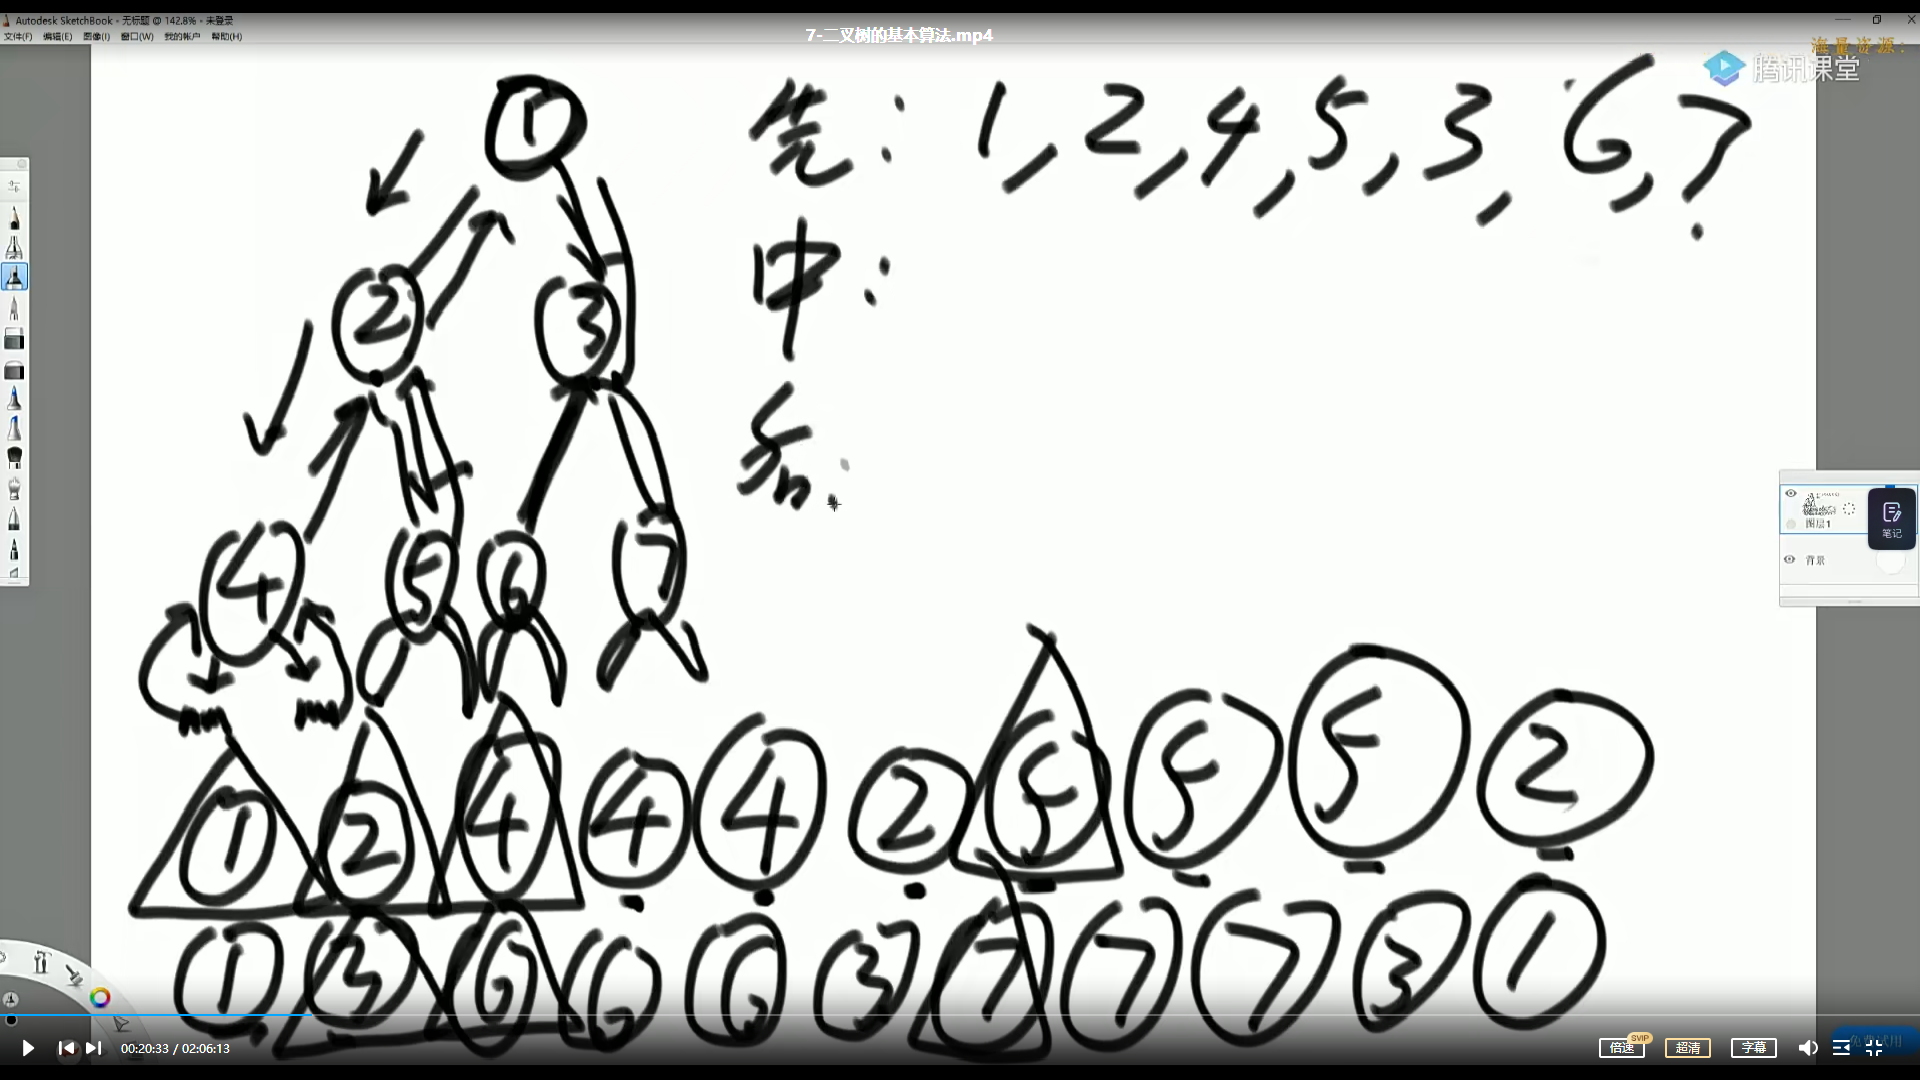 Autodesk SketchBook - 无标题 @ 142.8% - 未登录
文件(F) 编辑(E) 图像(I) 窗口(W) 我的帐户 帮助(H)
7-二叉树的基本算法.mp4
海量资源:
腾讯课堂
先: 1, 2, 4, 5, 3, 6, 7
中:
1
2 3
4 5 6 7
图层1
笔记
背景
1 2 4 4 4 2 5 5 5 2
1 3 6 6 6 3 7 7 7 3 1
00:20:33 / 02:06:13
倍速 SVIP 超清 字幕